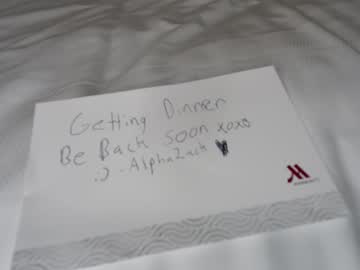 Getting Dinner
Be Back soon xoxo
:) - AlphaZach
Marriott